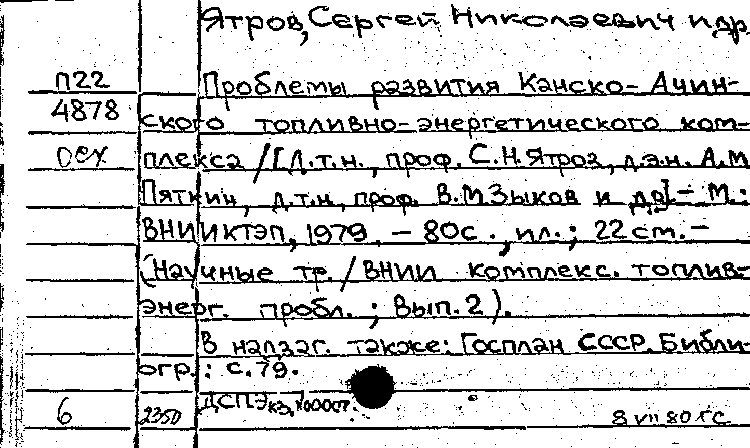 Ятров, Сергей Николаевич и др
П22
Проблемы развития Канско-Ачин-
4878
ского топливно-энергетического ком-
плекса /[Д.т.н., проф. С.Н.Ятров, д.э.н. А.М
Пяткин, д.т.н., проф. В.М Зыков и др]. - М.:
ВНИИКТЭП, 1979. - 80с., ил.; 22 см. -
(Научные тр./ВНИИ комплекс. топлив-
энерг. пробл.; Вып. 2).
В надзаг. также: Госплан СССР. Библи-
огр.: с.79.
6
2350
8 VII 80 г С